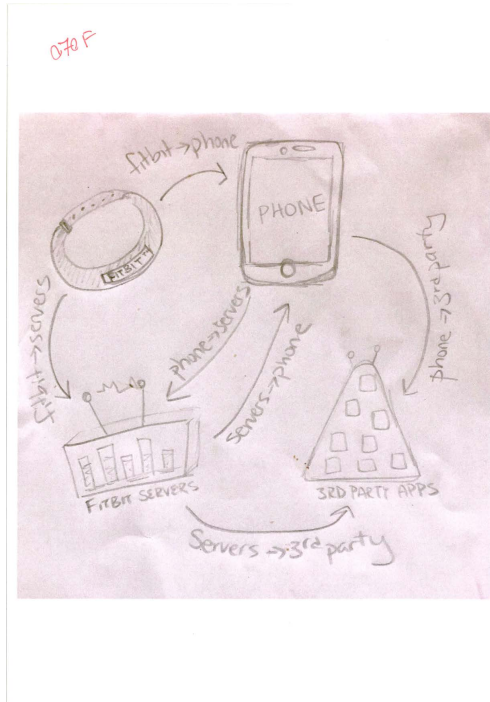 070F
fitbit → phone
PHONE
FITBIT
fitbit → servers
phone → servers
servers → phone
phone → 3rd party
FITBIT SERVERS
3RD PARTY APPS
Servers → 3rd party